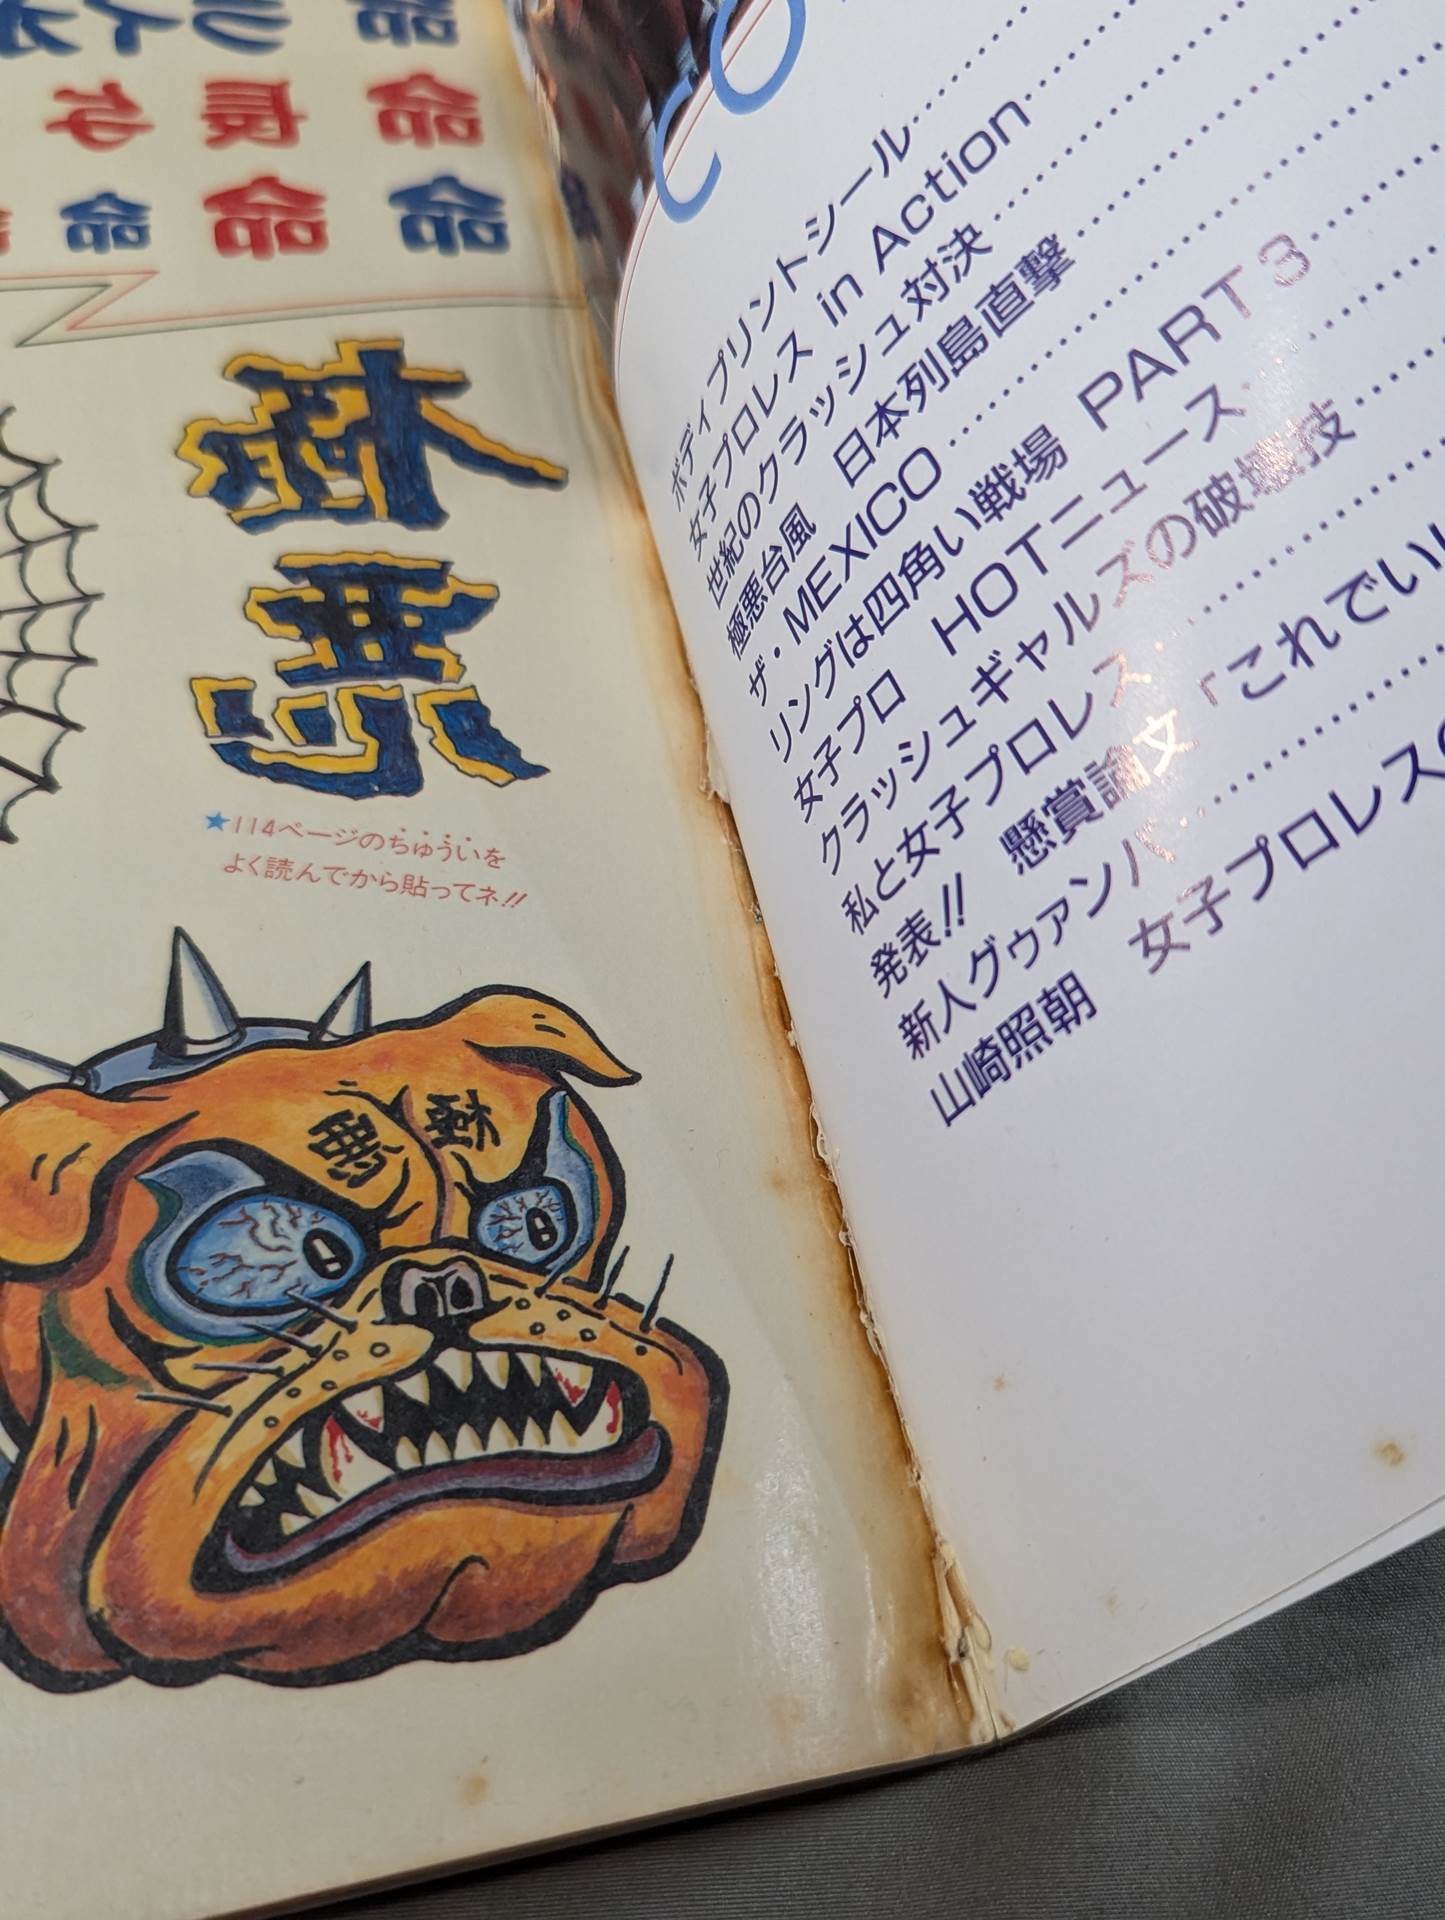 命
命 長 与
命 命 命
極
悪
★114ページのちゅういを
よく読んでから貼ってネ!!
極
悪
CO
ボディプリントシール
女子プロレス in Action
世紀のクラッシュ対決
極悪台風 日本列島直撃
ザ・MEXICO
リングは四角い戦場 PART 3
女子プロ HOTニュース
クラッシュギャルズの破壊技
私と女子プロレス
発表!! 懸賞論文「これでい
新人グゥアンバ
山崎照朝 女子プロレス